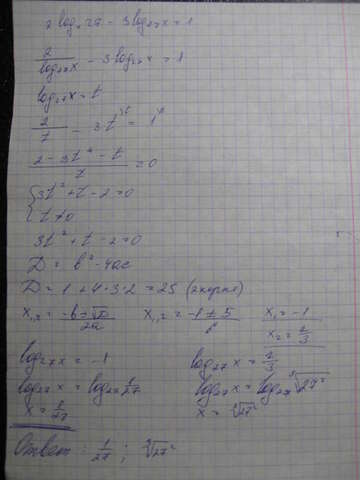 2 log_x 27 - 3 log_27 x = 1
2/log_27 x - 3 log_27 x = 1
log_27 x = t
2/t - 3t^\t = 1^\t
(2 - 3t² - t)/t = 0
{ 3t² + t - 2 = 0
{ t ≠ 0
3t² + t - 2 = 0
D = b² - 4ac
D = 1 + 4·3·2 = 25 (2 корня)
x_1,2 = (-b ± √D)/2a x_1,2 = (-1 ± 5)/6 x_1 = -1
x_2 = 2/3
log_27 x = -1 log_27 x = 2/3
log_27 x = log_27 1/27 log_27 x = log_27 ³√27²
x = 1/27 x = ³√27²
Ответ: 1/27 ; ³√27²